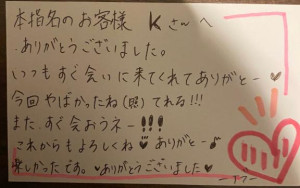 本指名のお客様 Kさんへ
ありがとうございました。
いつもすぐ会いに来てくれてありがとー♥
今回やばかったね(照)てれる!!!
また、すぐ会おうネー!!!
これからもよろしくね♥ありがとー♪
楽しかったです。♥ありがとうございました♥